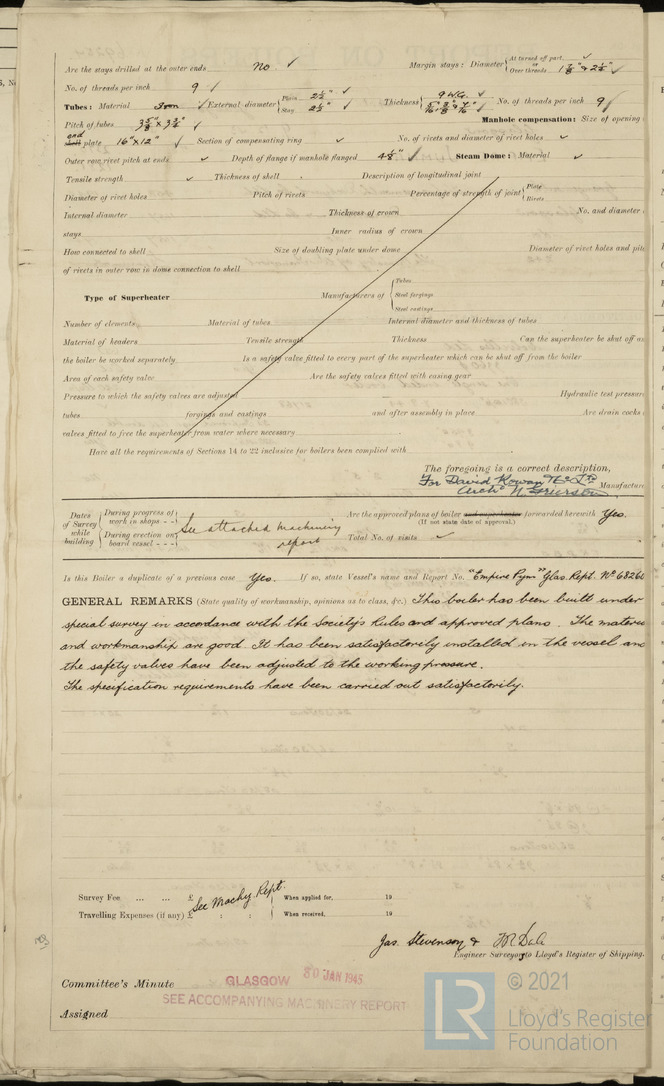 Are the stays drilled at the outer ends No. ✓ Margin stays: Diameter { At turned off part, ✓ or Over threads 1 7/8" & 2 1/4" ✓
No. of threads per inch 9 ✓
Tubes: Material Iron ✓ External diameter { Plain 2 1/2" ✓ Stay 2 1/2" ✓ Thickness { 9 W.G. ✓ 5/16", 3/8" 7/16" ✓ No. of threads per inch 9 ✓
Pitch of tubes 3 5/8" x 3 3/4" ✓ Manhole compensation: Size of opening
and shell plate 16" x 12" ✓ Section of compensating ring ✓ No. of rivets and diameter of rivet holes ✓
Outer row rivet pitch at ends ✓ Depth of flange if manhole flanged 4 1/8" ✓ Steam Dome: Material ✓
Tensile strength ✓ Thickness of shell Description of longitudinal joint
Diameter of rivet holes Pitch of rivets Percentage of strength of joint { Plate Rivets
Internal diameter Thickness of crown No. and diameter
stays Inner radius of crown
How connected to shell Size of doubling plate under dome Diameter of rivet holes and pitc
of rivets in outer row in dome connection to shell
Type of Superheater Manufacturers of { Tubes Steel forgings Steel castings
Number of elements Material of tubes Internal diameter and thickness of tubes
Material of headers Tensile strength Thickness Can the superheater be shut off an
the boiler be worked separately Is a safety valve fitted to every part of the superheater which can be shut off from the boiler
Area of each safety valve Are the safety valves fitted with easing gear
Pressure to which the safety valves are adjusted Hydraulic test pressure
tubes forgings and castings and after assembly in place Are drain cocks
valves fitted to free the superheater from water where necessary
Have all the requirements of Sections 14 to 22 inclusive for boilers been complied with
The foregoing is a correct description,
For David Rowan & Co. Ltd Manufacture
Dates of Survey while building { During progress of work in shops - - During erection on board vessel - - - } See attached machinery report
Are the approved plans of boiler and superheater forwarded herewith Yes.
(If not state date of approval.)
Total No. of visits ✓
Is this Boiler a duplicate of a previous case Yes. If so, state Vessel's name and Report No. "Empire Pym" Glas. Rept. No 6826
GENERAL REMARKS (State quality of workmanship, opinions as to class, &c.) This boiler has been built under
special survey in accordance with the Society's Rules and approved plans. The materia
and workmanship are good. It has been satisfactorily installed in the vessel and
the safety valves have been adjusted to the working pressure.
The specification requirements have been carried out satisfactorily.
Survey Fee ... ... £ : : When applied for, 19
See Machy. Rept.
Travelling Expenses (if any) £ : : When received, 19
Jas. Stevenson &
Engineer Surveyor to Lloyd's Register of Shipping.
Committee's Minute GLASGOW 30 JAN 1945
SEE ACCOMPANYING MACHINERY REPORT
Assigned
LR © 2021
Lloyd's Register
Foundation